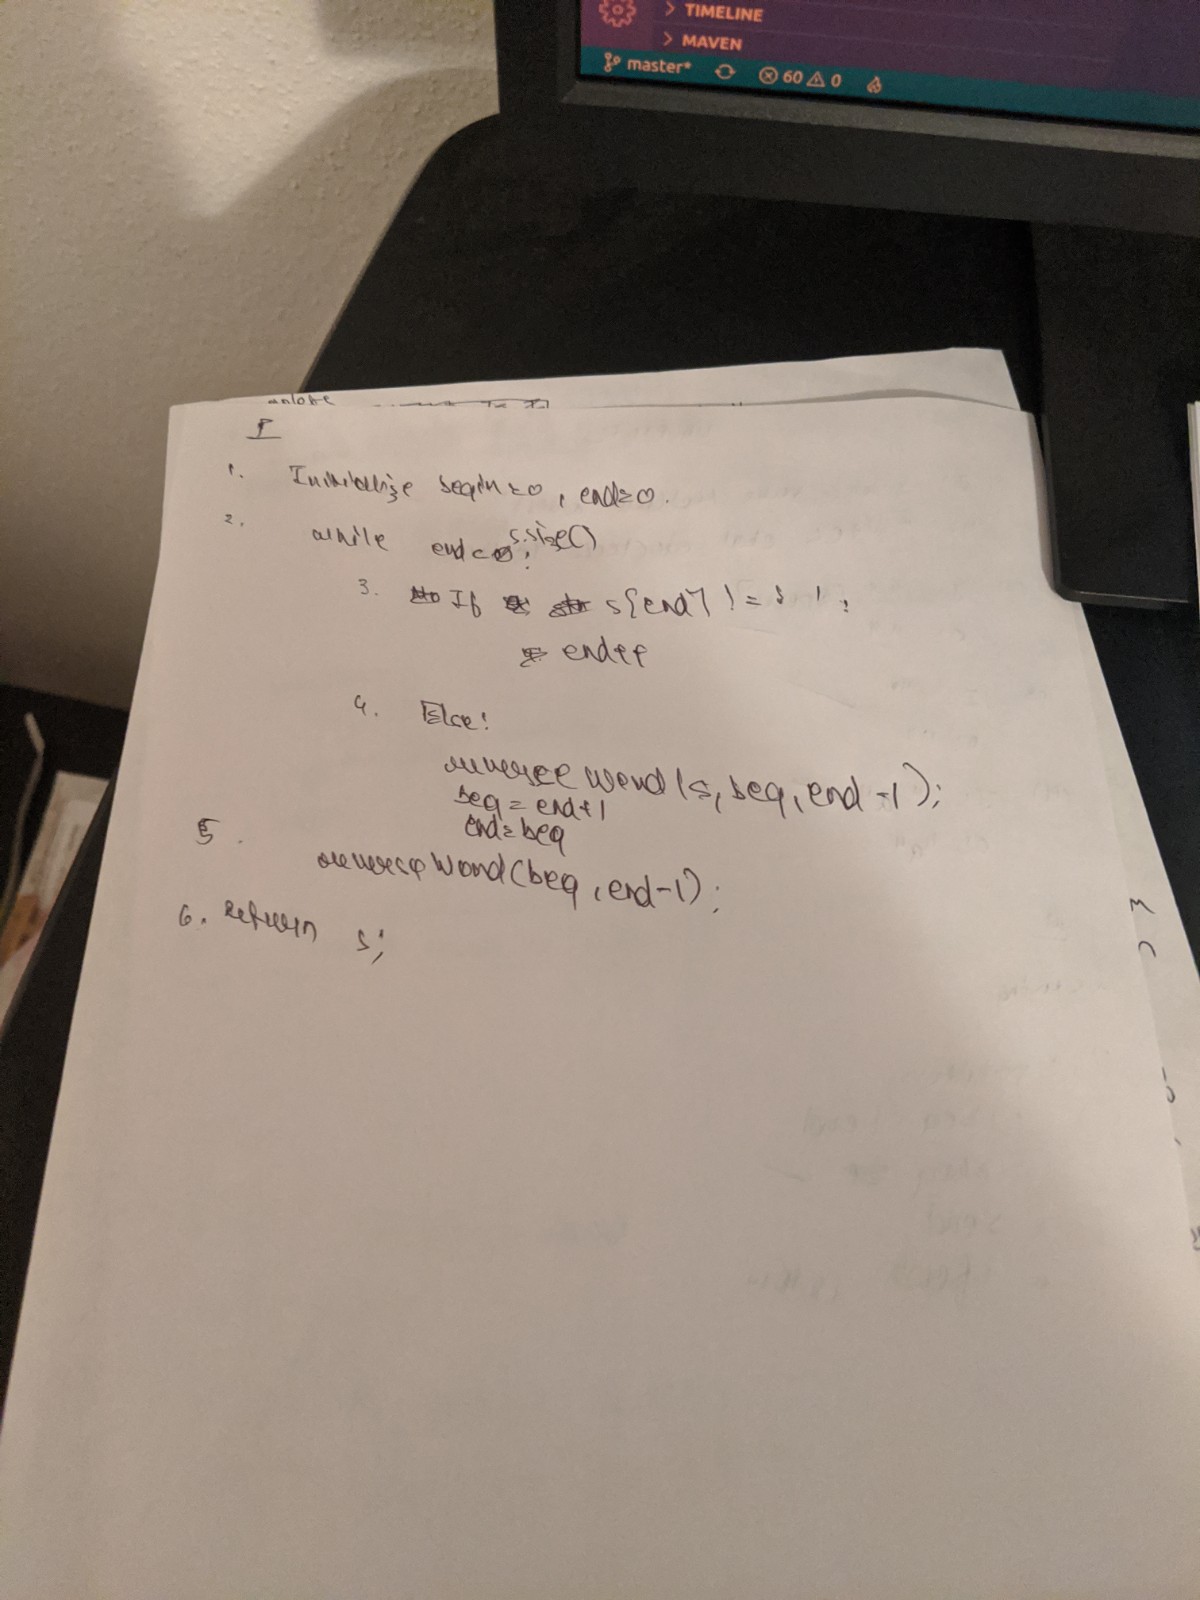 TIMELINE
MAVEN
master* 60 0
P
1. Initialize begin=0, end=0.
2. while end< s.size()
3. If s[end] != ' ';
end++
4. Else:
reverse Word (s, beg, end -1);
beg = end+1
end=beg
5.
reverse Word (beg, end-1);
6. return s;